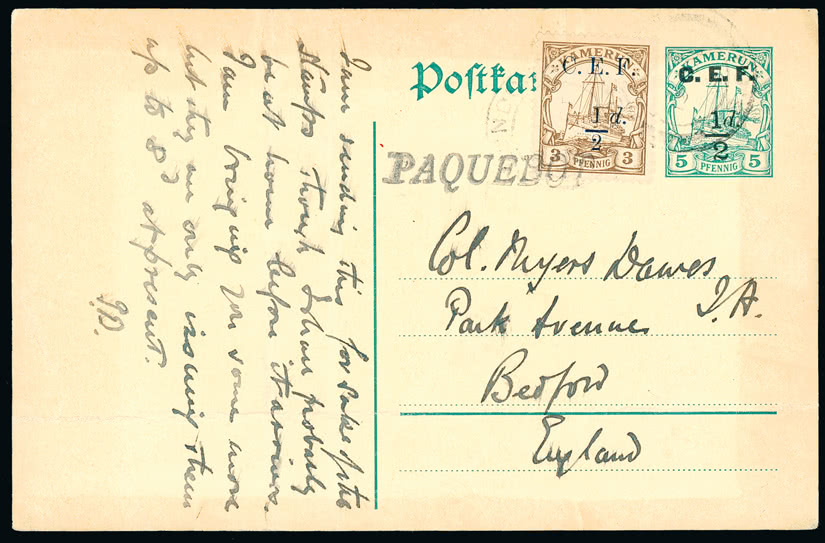 Postka
KAMERUN
C. E. F.
1 d.
2
3 PFENNIG 3
KAMERUN
C. E. F.
1d.
2
5 PFENNIG 5
PAQUEBOT
Col. Myers Dawes
I.A.
Park Avenue
Bedford
England
I am sending this for sake of the
stamps though I shall probably
be at home before it arrives.
I am bringing you some more
but they are only issuing them
up to 8d at present.